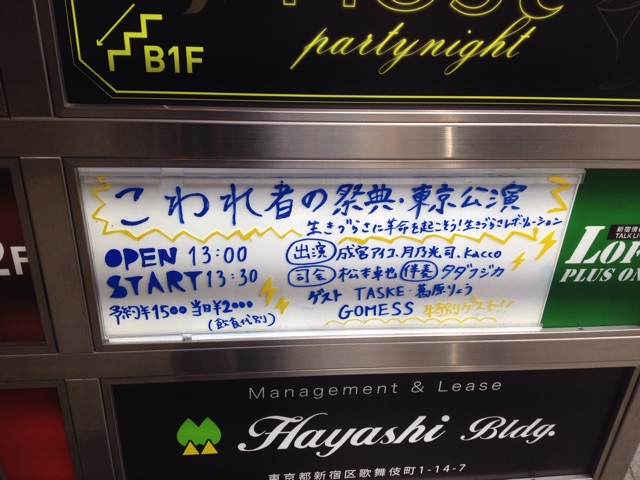 B1F
partynight
こわれ者の祭典・東京公演
生きづらさに革命を起こそう!生きづらさレボリューション
OPEN 13:00
START 13:30
予約¥1500 当日¥2000
(飲食代別)
出演 成宮アイコ、月乃光司、Kacco
司会 松本卓也 伴奏 タダフジカ
ゲスト TASKE・葛原りょう
GOMESS 特別ゲスト!!
2F
TALK LI
PLUS ON
Management & Lease
Hayashi Bldg.
東京都新宿区歌舞伎町1-14-7